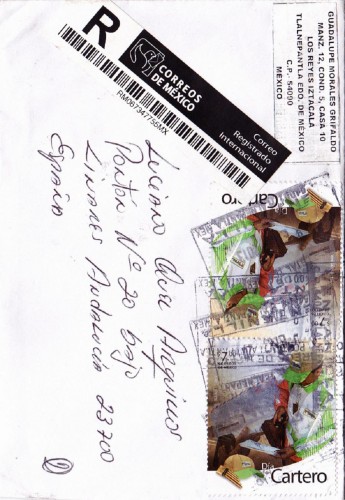 GUADALUPE MORALES GRIFALDO
MANZ. 12, COND. 5, CASA 10
LOS REYES IZTACALA
TLALNEPANTLA EDO. DE MÉXICO
C.P. 54090
MÉXICO
R
CORREOS
DE MÉXICO
Correo
Registrado
Internacional
RM067347755MX
Luciano
Pontón Nº 20 bajo
Linares Andalucía 23700
España
Día
Cartero
Día
Cartero